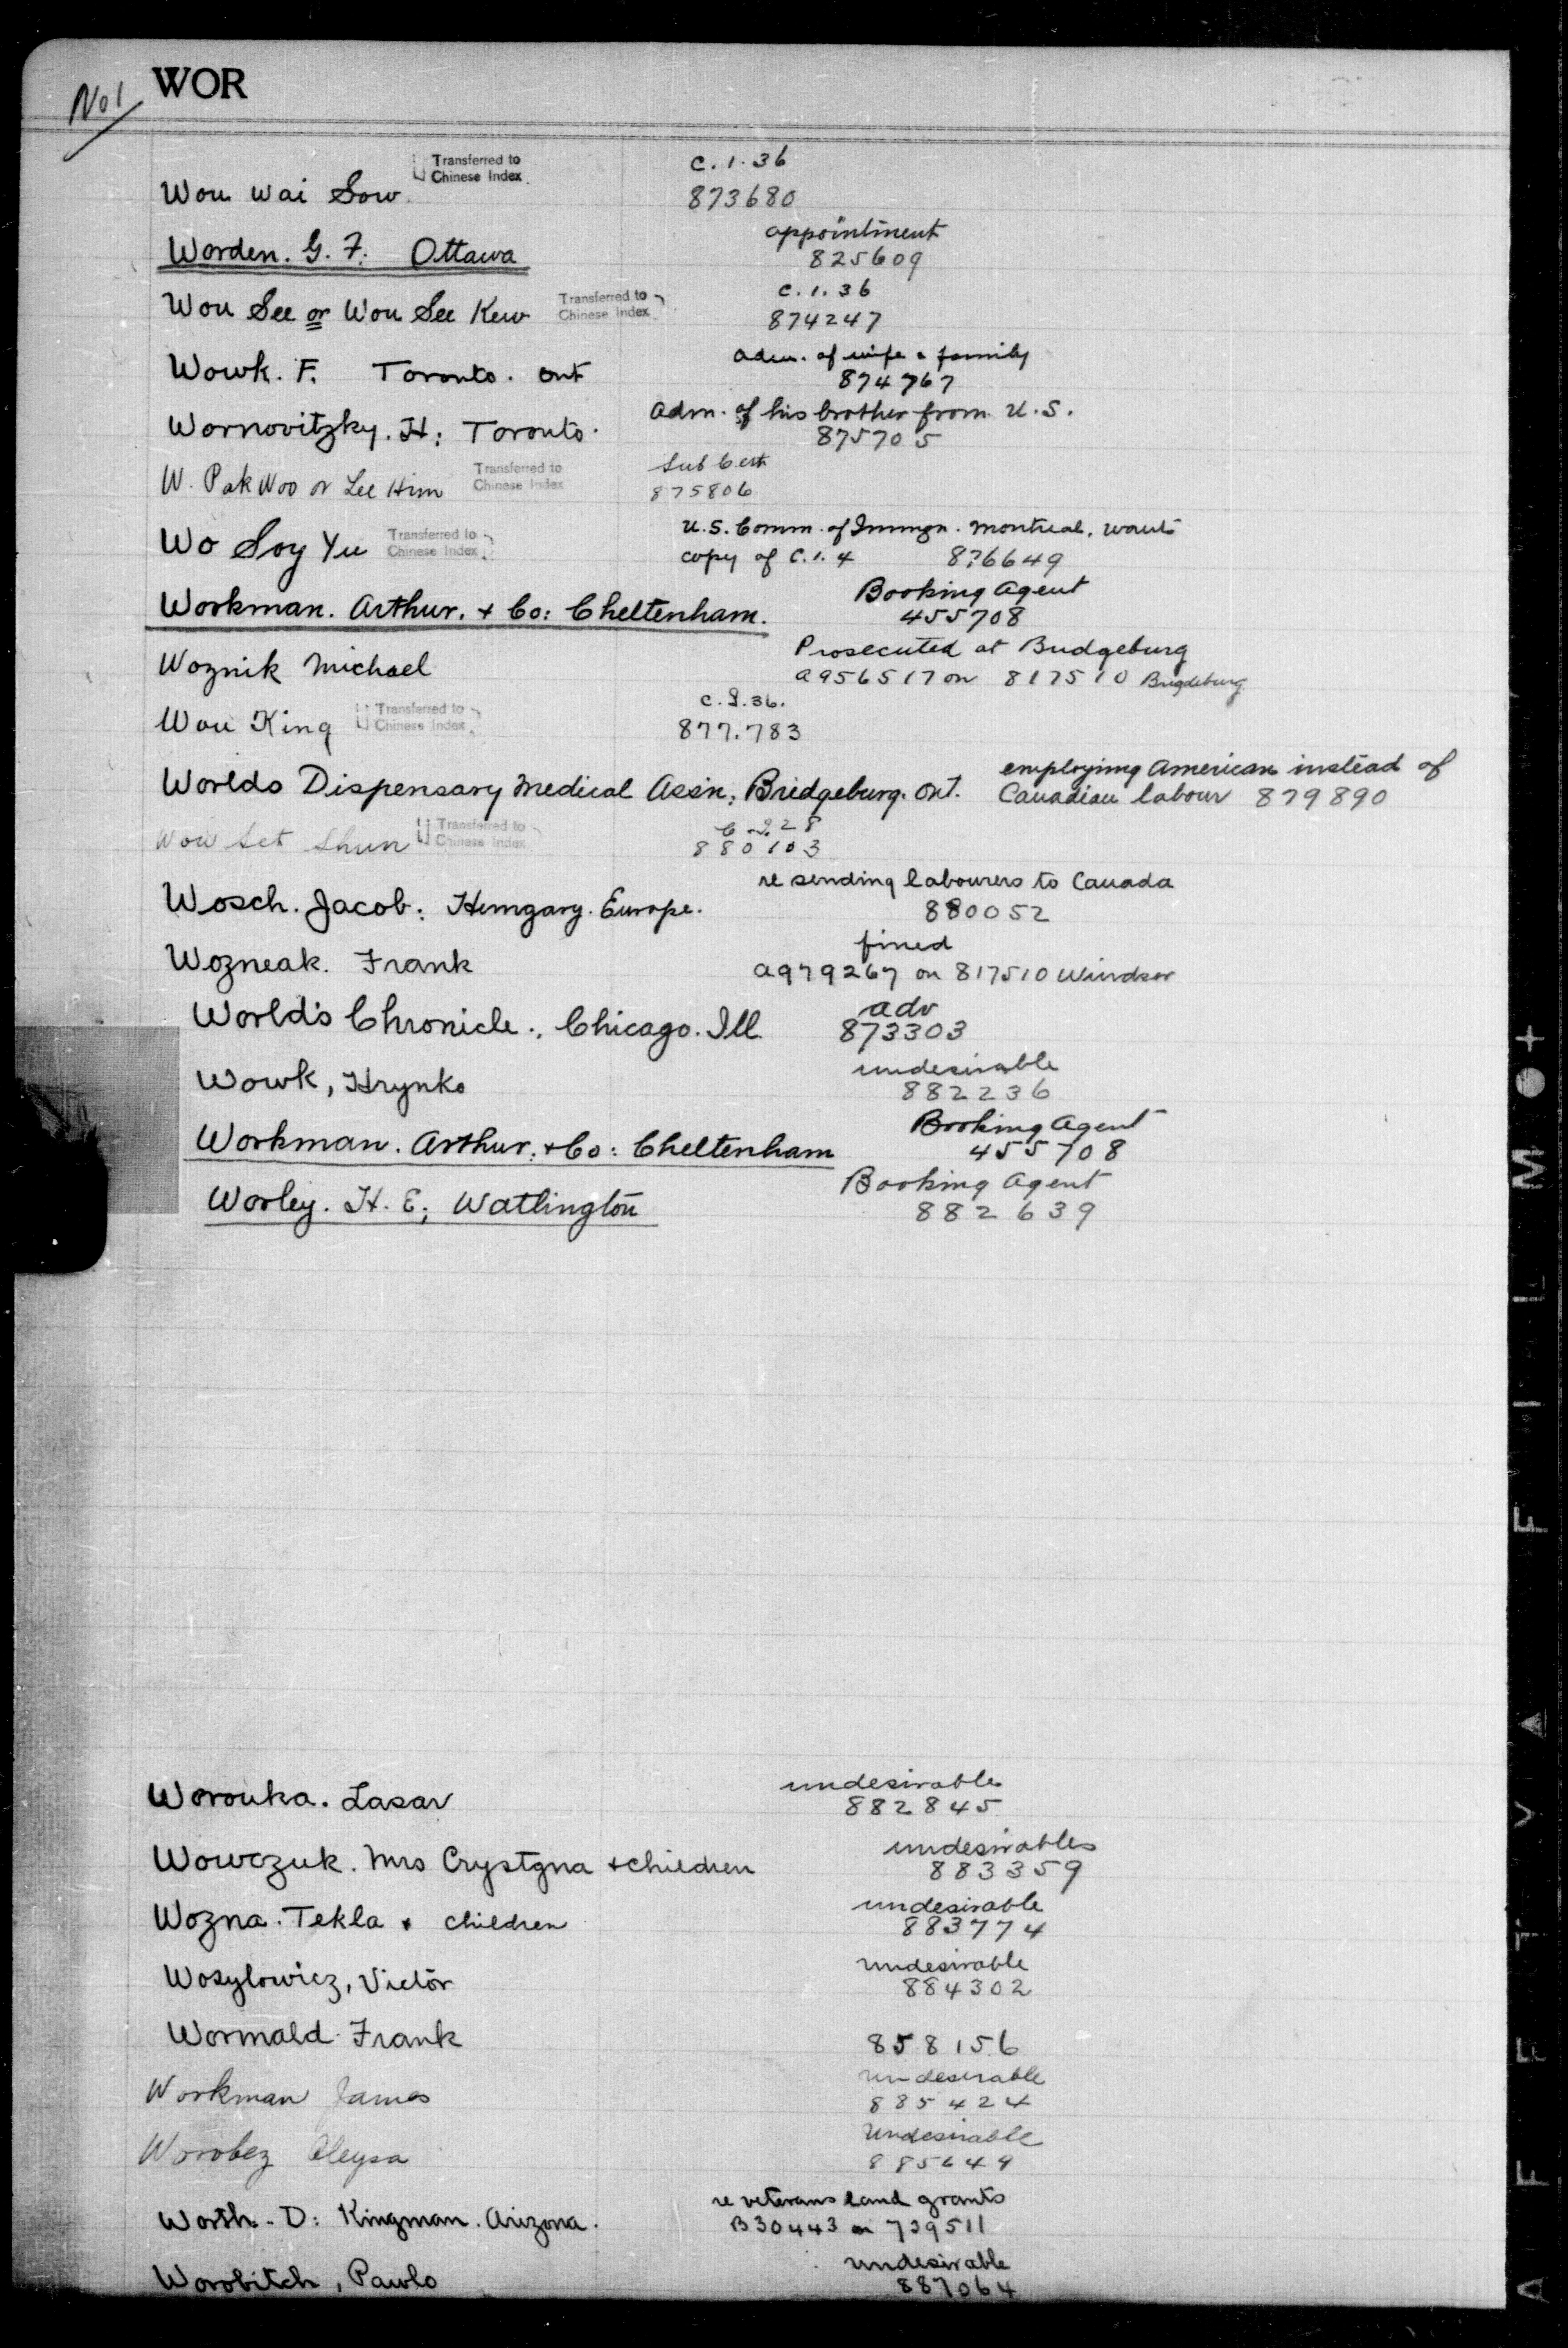 No 1 WOR
Transferred to
Chinese Index
C.1.36
Wou Wai Sow 873680
appointment
Worden. G. F: Ottawa 825609
C.1.36
Wou See or Wou See Kew Transferred to
Chinese Index
874247
adm. of wife & family
Wowk. F. Toronto. Ont
874767
Adm. of his brother from U.S.
Wornovitzky. H: Toronto.
875705
Sub Cert
W. Pak Woo or Lee Him Transferred to
Chinese Index
875806
U.S. Comm. of Immgn. Montreal, wants
Wo Soy Yu Transferred to
Chinese Index
copy of C.1.4 876649
Booking Agent
Workman. Arthur. + Co: Cheltenham.
455708
Prosecuted at Bridgeburg
Woznik Michael
a956517 on 817510 Brigdeburg
C.I.36.
Wou King Transferred to
Chinese Index
877.783
employing American instead of
Worlds Dispensary Medical Assn; Bridgeburg. Ont.
Canadian labour 879890
Wou Set Shun Transferred to
Chinese Index
C.I.28
880103
re sending labourers to Canada
Wosch. Jacob: Hungary. Europe.
880052
fined
Wozneak. Frank
a979267 on 817510 Windsor
adv
World's Chronicle., Chicago. Ill.
873303
undesirable
Wowk, Hrynko
882236
Booking Agent
Workman. Arthur: + Co: Cheltenham
455708
Booking Agent
Worley. H. E; Watlington
882639
undesirable
Worouka. Lasar
882845
undesirables
Wowczuk. Mrs Crystyna + children
883359
undesirable
Wozna. Tekla + children
883774
undesirable
Wosylowicz, Victor
884302
Wormald Frank
858156
undesirable
Workman James
885424
Undesirable
Worobez Oleysa
885649
re veterans land grants
Worth - D: Kingman. Arizona.
B30443 on 729511
undesirable
Worobitch, Pawlo
887064
A F E T Y A F I L M +